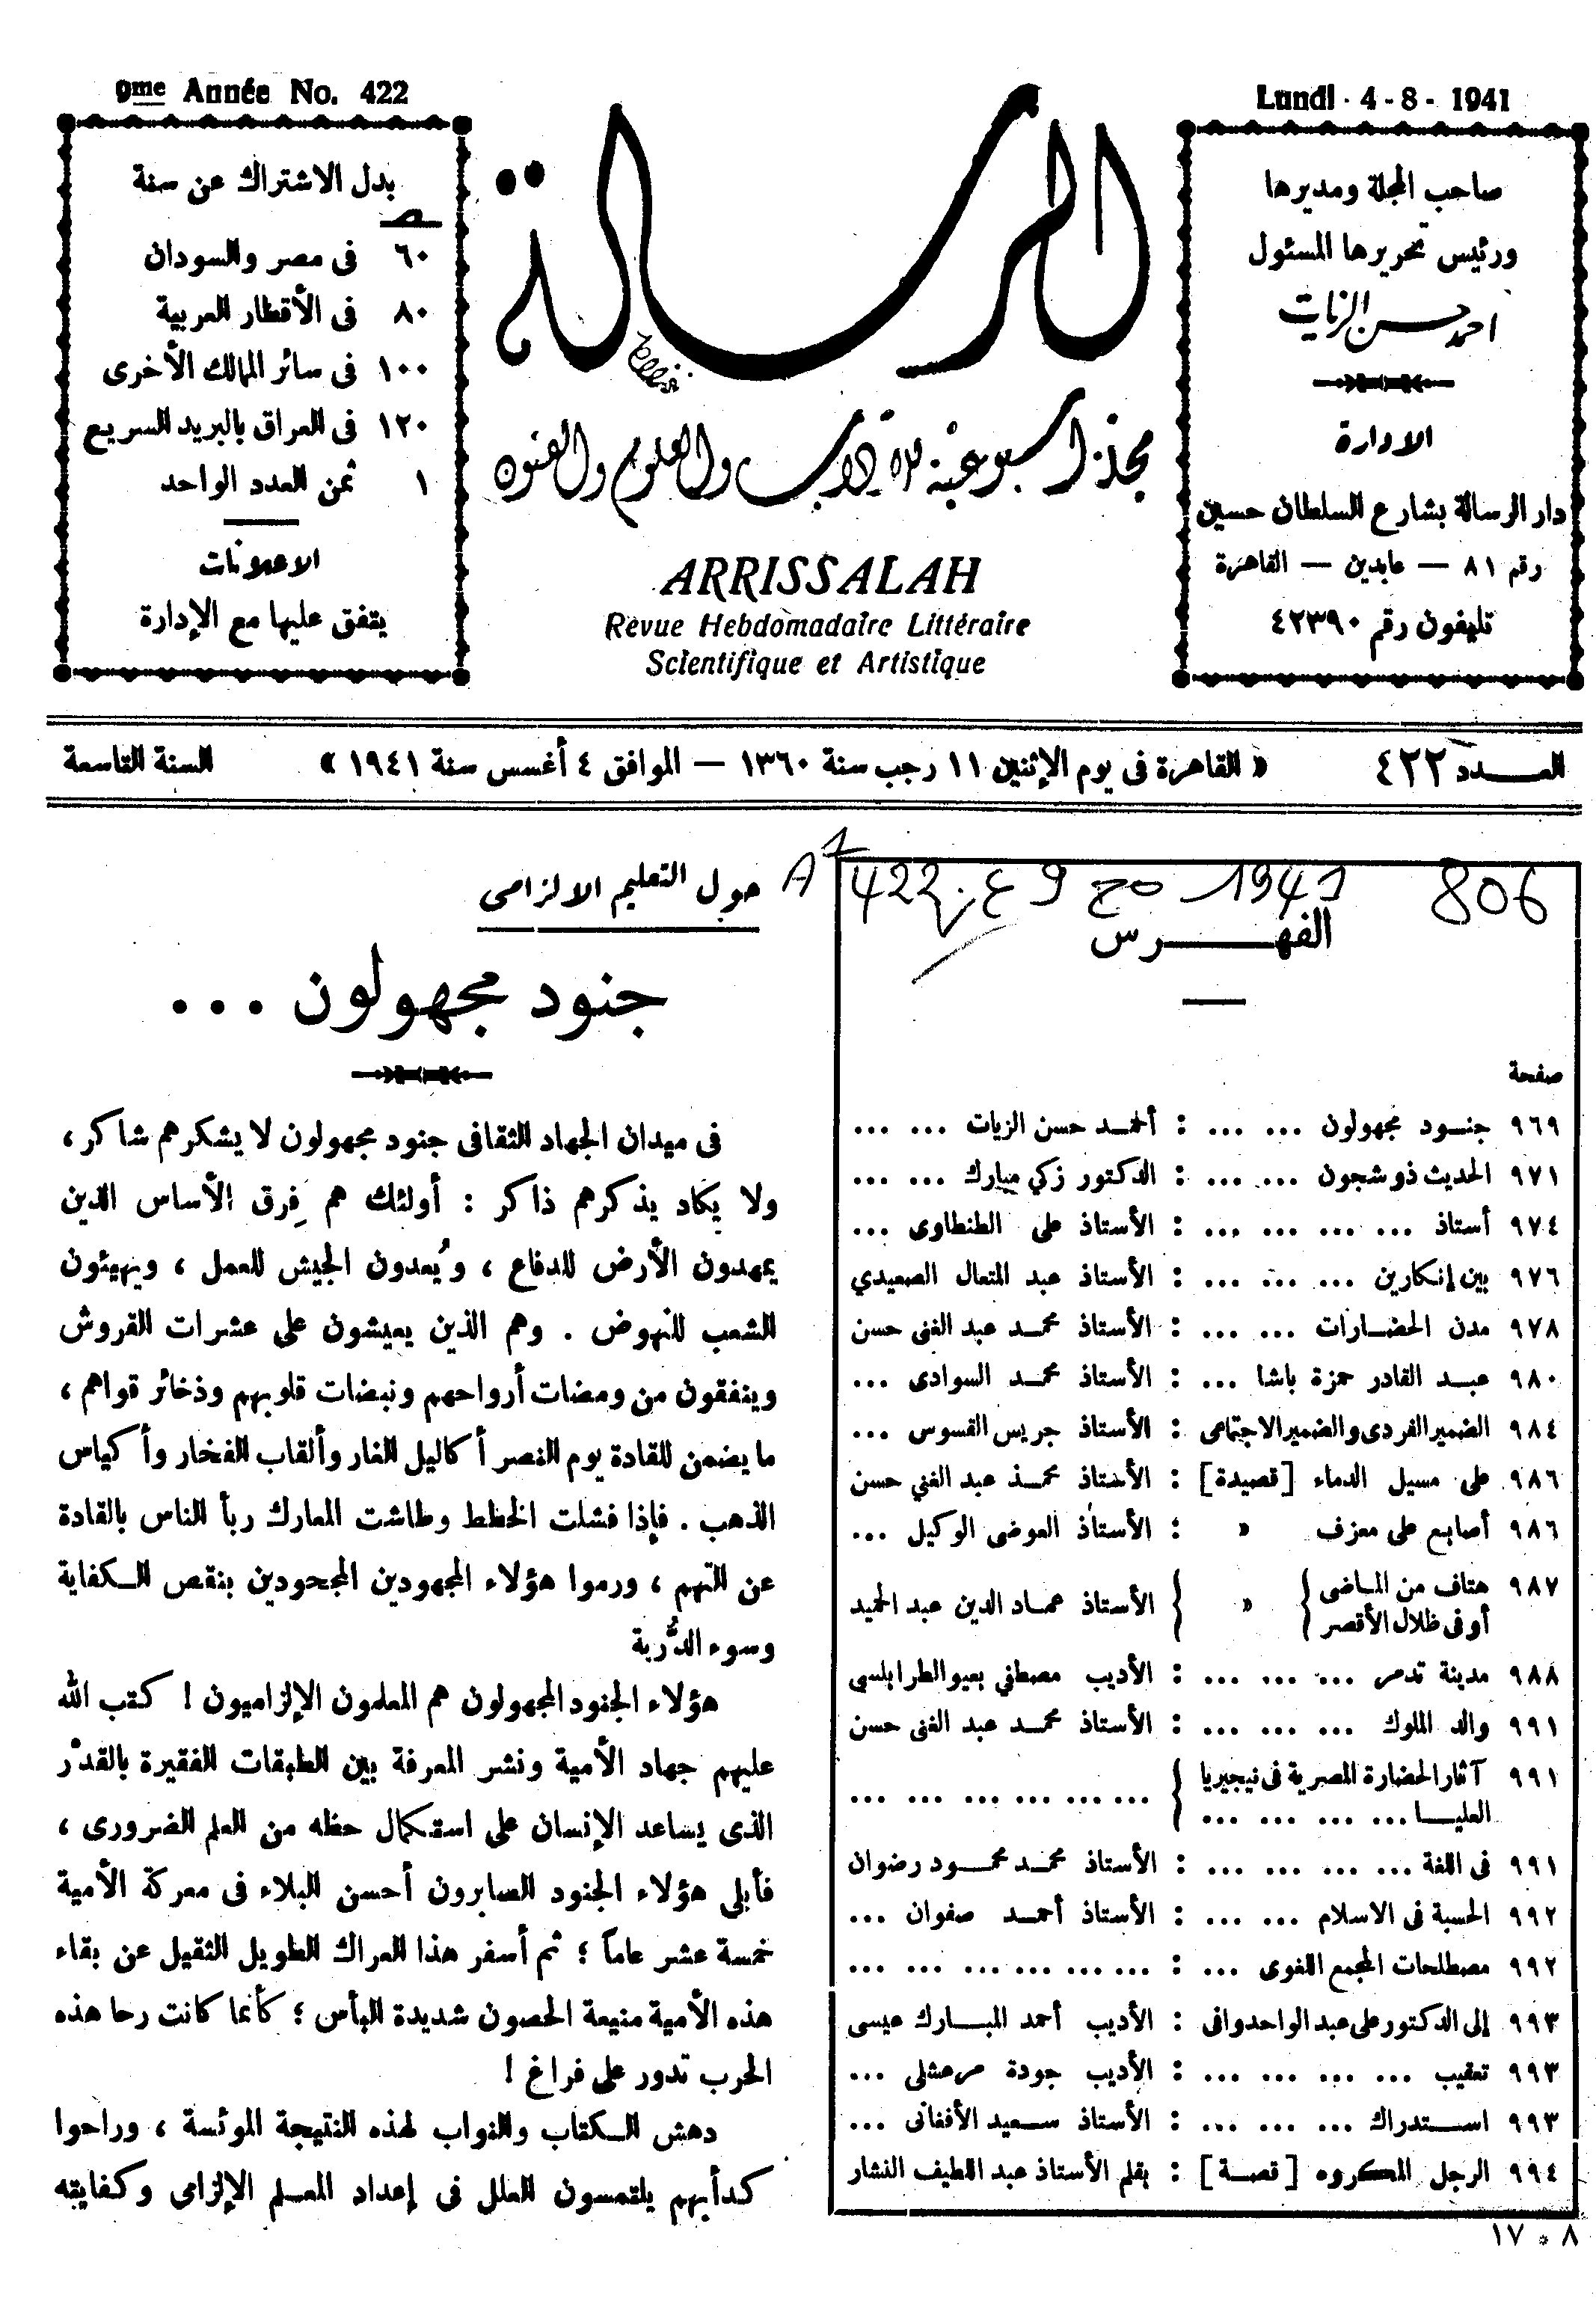 9me Année No. 422
Lundi - 4 - 8 - 1941
صاحب المجلة ومديرها
ورئيس تحريرها المسئول
احمد حسن الزيات
الادارة
دار الرسالة بشارع السلطان حسين
رقم ٨١ — عابدين — القاهرة
تليفون رقم ٤٢٣٩٠
الرسالة
مجلة اسبوعية للآداب والعلوم والفنون
ARRISSALAH
Revue Hebdomadaire Littéraire
Scientifique et Artistique
بدل الاشتراك عن سنة
ص
٦٠ فى مصر والسودان
٨٠ فى الأقطار العربية
١٠٠ فى سائر الممالك الأخرى
١٢٠ فى العراق بالبريد السريع
١ ثمن العدد الواحد
الاعلانات
يتفق عليها مع الإدارة
العـــدد ٤٢٢ « القاهرة فى يوم الإثنين ١١ رجب سنة ١٣٦٠ — الموافق ٤ أغسس سنة ١٩٤١ » السنة التاسعة
806 1941
422
الفهـــرس
صفحة
٩٦٩ جنـود مجهولون ... ... : أحمـد حسن الزيات ... ...
٩٧١ الحديث ذو شجون ... ... : الدكتور زكي مبارك ... ...
٩٧٤ أستاذ ... ... ... ... : الأستاذ على الطنطاوى ...
٩٧٦ بين إنكارين ... ... ... : الأستاذ عبد المتعال الصعيدي
٩٧٨ مدن الحضـارات ... ... : الأستاذ محمـد عبد الغنى حسن
٩٨٠ عبـد القادر حمزة باشا ... : الأستاذ محمـد السوادى ...
٩٨٤ الضمير الفردى والضمير الاجتماعى : الأستاذ جريس القسوس ...
٩٨٦ على مسيل الدماء [ قصيدة ] : الأستاذ محمـد عبد الغني حسن
٩٨٦ أصابع على معزف » : الأستاذ العوضى الوكيل ...
٩٨٧ هتاف من المـاضى } » { الأستاذ عمـاد الدين عبد الحميد
أو فى ظلال الأقصر
٩٨٨ مدينة تدمر ... ... ... : الأديب مصطفي بعيو الطرابلسى
٩٩١ والد الملوك ... ... ... : الأستاذ محمـد عبد الغنى حسن
٩٩١ آثار الحضارة المصرية فى نيجيريا { ... ... ... ... ... ...
العليـا ... ... ... ...
٩٩١ فى اللغة ... ... ... ... : الأستاذ محمـد محمـود رضوان
٩٩٢ الحسبة فى الاسلام ... ... : الأستاذ أحمـد صفوان ...
٩٩٢ مصطلحات المجمع اللغوى ... : ... ... ... ... ... ...
٩٩٣ إلى الدكتور على عبد الواحد وافى : الأديب أحمد المبـارك عيسى
٩٩٣ تعقيب ... ... ... ... : الأديب جودة مرعشلى ...
٩٩٣ اسـتدراك ... ... ... : الأستاذ سـعيد الأفغانى ...
٩٩٤ الرجل المكروه [ قصـة ] : بقلم الأستاذ عبد اللطيف النشار
٨ * ١٧
حول التعليم الالزامى
جنود مجهولون ...
فى ميدان الجهاد الثقافى جنود مجهولون لا يشكرهم شاكر ،
ولا يكاد يذكرهم ذاكر : أولئك هم فِرق الأساس الذين
يمهدون الأرض للدفاع ، ويُعدون الجيش للعمل ، ويهيئون
الشعب للنهوض . وهم الذين يعيشون على عشرات القروش
وينفقون من ومضات أرواحهم ونبضات قلوبهم وذخائر قواهم ،
ما يضمن للقادة يوم النصر أكاليل الغار وألقاب الفخار وأكياس
الذهب . فإذا فشلت الخطط وطاشت المعارك ربأ الناس بالقادة
عن التهم ، ورموا هؤلاء المجهودين المجحودين بنقص الـكفاية
وسوء الدُّربة
هؤلاء الجنود المجهولون هم المعلمون الإلزاميون ! كتب الله
عليهم جهاد الأمية ونشر المعرفة بين الطبقات الفقيرة بالقدْر
الذى يساعد الإنسان على استكمال حظه من العلم الضرورى ،
فأبلى هؤلاء الجنود الصابرون أحسن البلاء فى معركة الأمية
خمسة عشر عاماً ؛ ثم أسفر هذا العراك الطويل الثقيل عن بقاء
هذه الأمية منيعة الحصون شديدة البأس ؛ كأنما كانت رحا هذه
الحرب تدور على فراغ !
دهش الـكتاب والنواب لهذه النتيجة الموئسة ، وراحوا
كدأبهم يلتمسون العلل فى إعداد المعـلم الإلزامى وكفايته